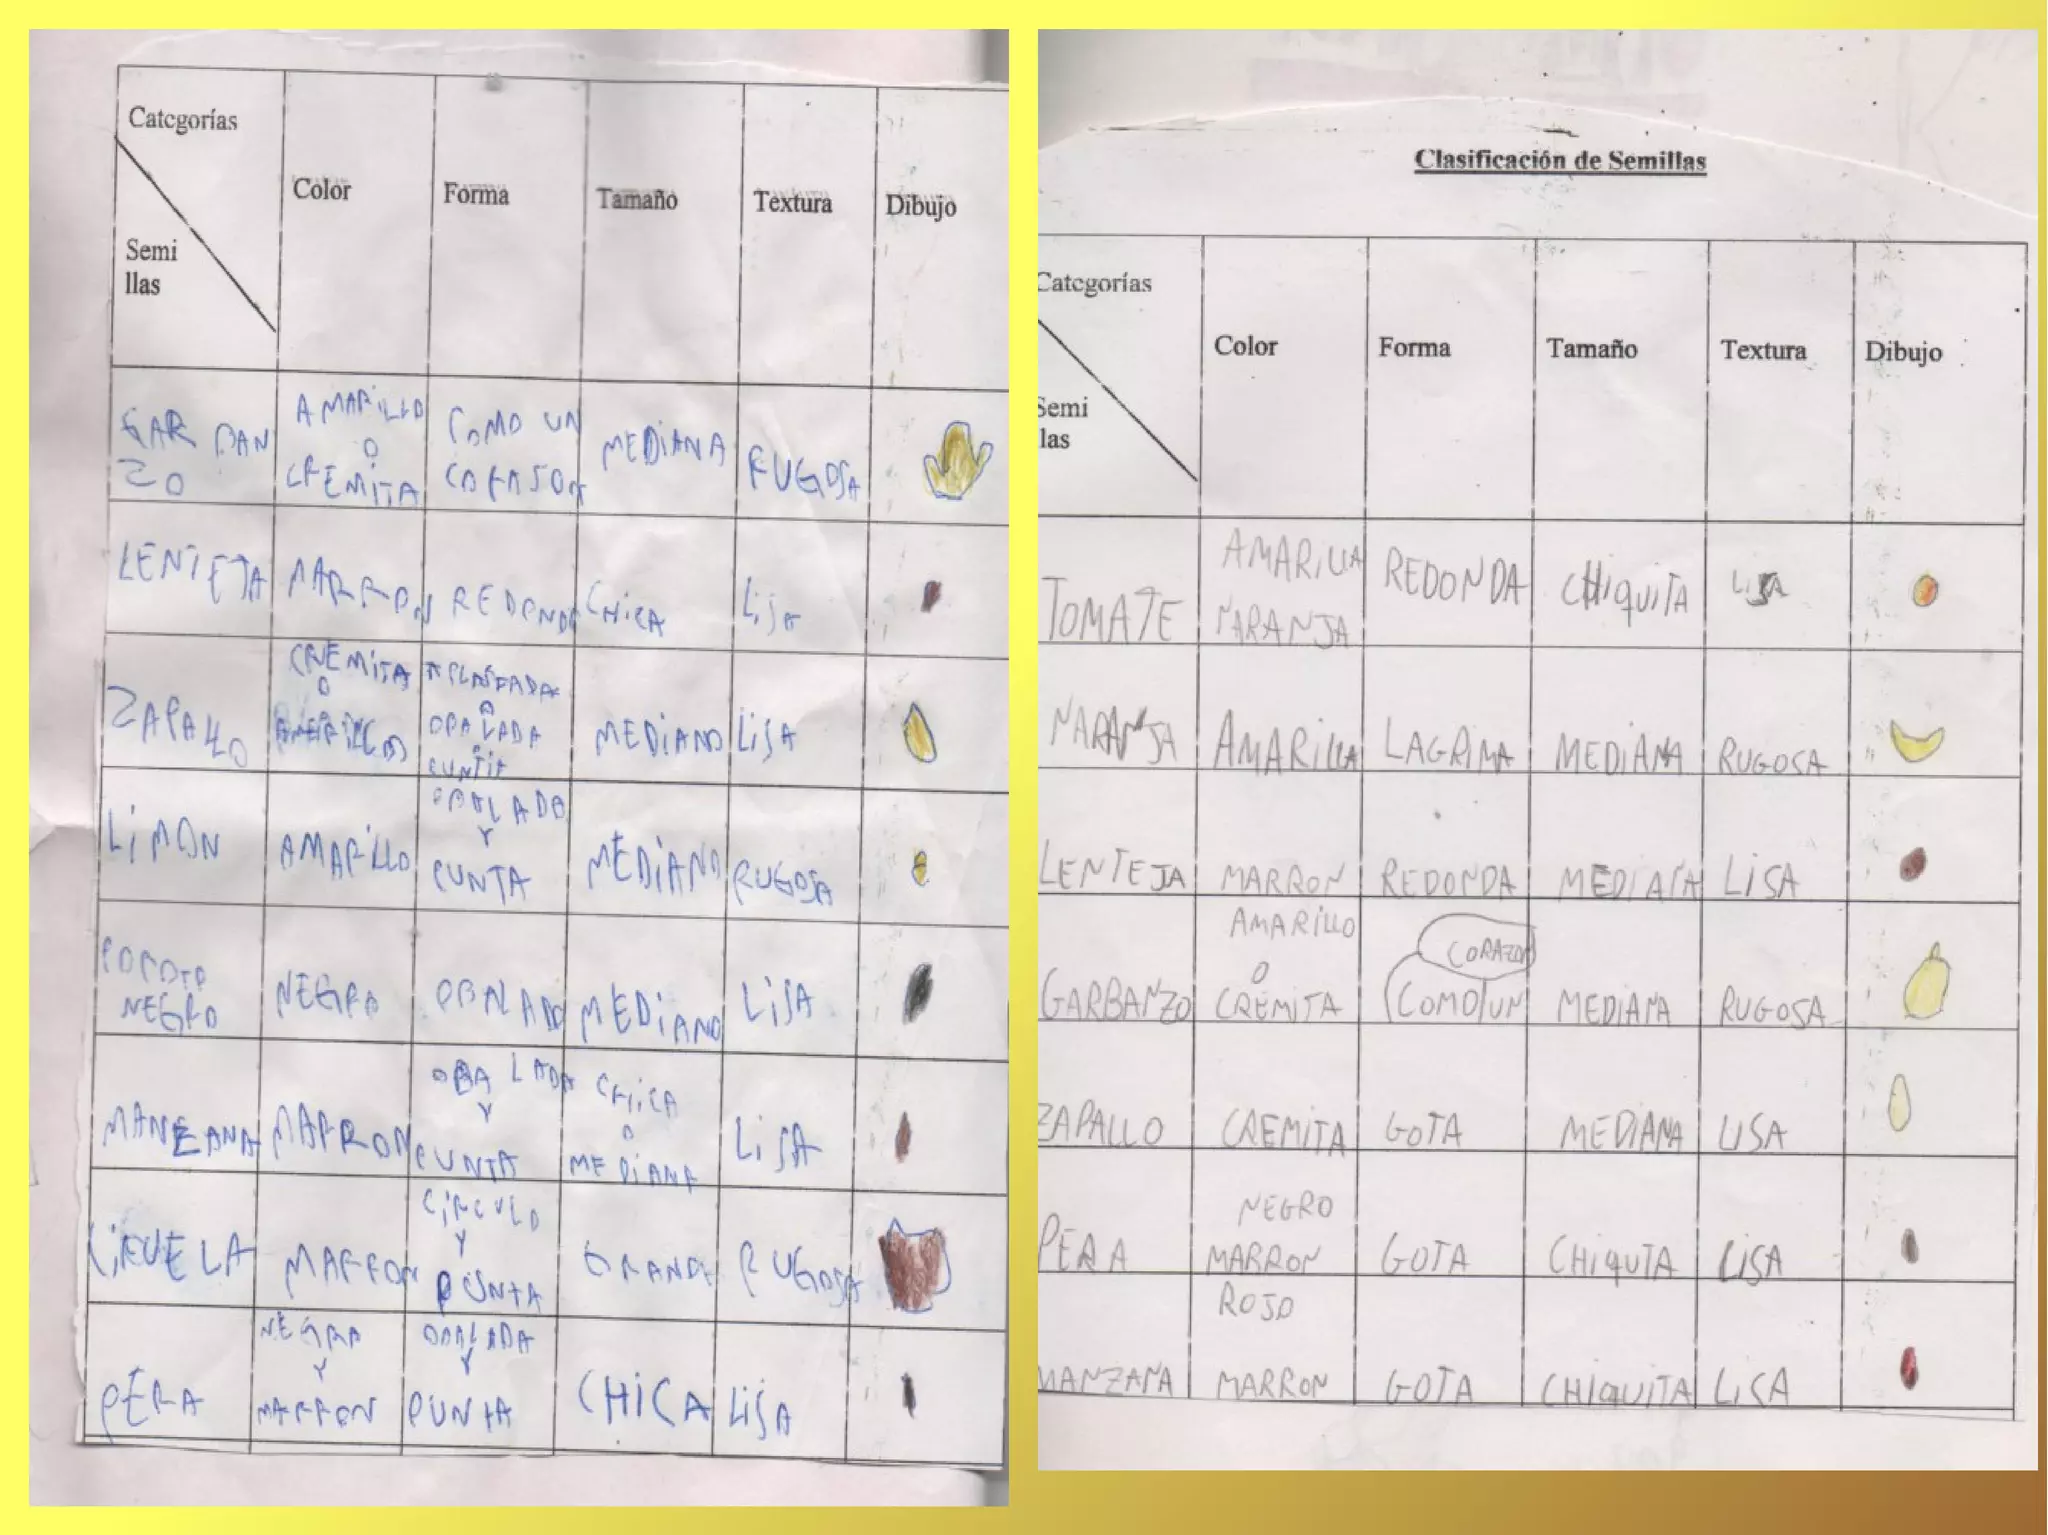 Categorías
Semi
llas
Color
Forma
Tamaño
Textura
Dibujo
GARBAN
ZO
AMARILLO
O
CREMITA
COMO UN
CORASON
MEDIANA
RUGOSA
LENTEJA
MARRON
REDONDO
CHICA
LISA
ZAPALLO
CREMITA
O
AMARILLO
APLASTADA
O
OBALADA
PUNTIA
MEDIANO
LISA
LIMON
AMARILLO
OBALADO
Y
PUNTA
MEDIANO
RUGOSA
POROTO
NEGRO
NEGRO
OBALADO
MEDIANO
LISA
MANZANA
MARRON
OBALADA
Y
PUNTA
CHICA
O
MEDIANA
LISA
CIRUELA
MARRON
CIRCULO
Y
PUNTA
GRANDE
RUGOSA
PERA
NEGRA
Y
MARRON
OBALADA
Y
PUNTA
CHICA
LISA
Clasificación de Semillas
Categorías
Semi
las
Color
Forma
Tamaño
Textura
Dibujo
TOMATE
AMARILLA
NARANJA
REDONDA
CHIQUITA
LISA
NARANJA
AMARILLA
LAGRIMA
MEDIANA
RUGOSA
LENTEJA
MARRON
REDONDA
MEDIANA
LISA
GARBANZO
AMARILLO
O
CREMITA
CORAZON
COMO UN
MEDIANA
RUGOSA
ZAPALLO
CREMITA
GOTA
MEDIANA
LISA
PERA
NEGRO
MARRON
GOTA
CHIQUTA
LISA
MANZANA
ROJO
MARRON
GOTA
CHIQUITA
LISA